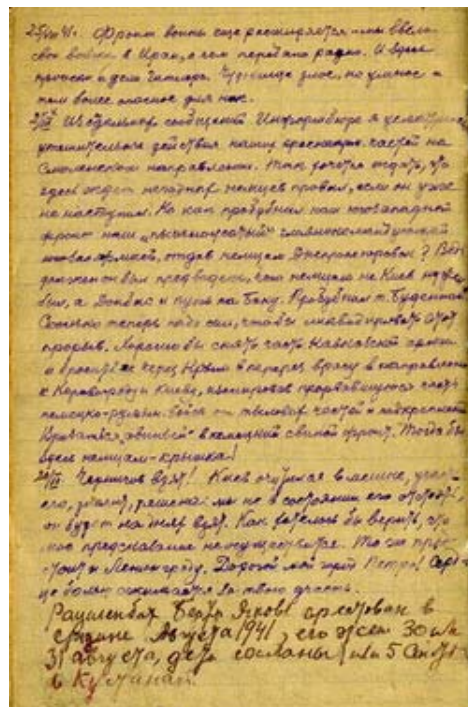 25/VIII 41 г. Фронт войны еще расширяется - мы ввели
свои войска в Иран, о чем передало радио. И здесь
происки и дела Гитлера. Чудовище злое, но умное и
тем более опасное для нас.
Из отдельных сообщений Информбюро я
действия наших частей на
Смоленском направлении. Так хочется ждать, что
здесь ждет немцев провал, если он уже
не наступил. Но как пробудил наш югозападный
фронт наш главнокомандующий
армией, отдав немцам Днепропетровск? Ведь
должен он был предвидеть, что немцам не Киев нужен
был, а Донбасс и пути на Баку. т. Буденный!
Сколько теперь надо сил, чтобы ликвидировать этот
прорыв. Хорошо бы снять часть Кавказской армии
и бросить ее через Крым в перерез врагу в направлении
к Кировограду и Киеву, изолировав прорвавшуюся часть
немецко-румын. войск от тыловых частей и подкреплений.
Врезаться „свиньей“ в немецкий свиной фронт. Тогда бы
здесь немцам - крышка!
Чернигов взят! Киев очутился в мешке, участь
его, значит, решена: мы не в состоянии его отстоять,
он будет на днях взят. Как хотелось бы верить, что
мое предсказание не осуществится. То же
Ленинграду. Дорогой мой град Петра! Сердце
больно сжимается за твою участь.
арестован в
средине Августа 1941, его жена 30 или
31 августа, дети сосланы 4 или 5 Сент
в